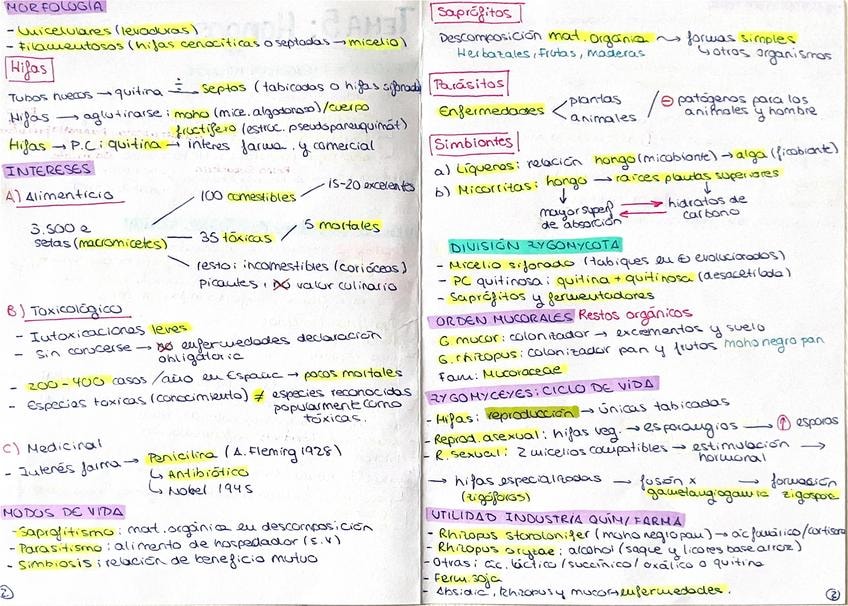 MORFOLOGÍA
- Unicelulares (levaduras)
- Filamentosos (hifas cenocíticas o septadas → micelio)
Hifas
Tubos huecos → quitina ÷ septos (tabicadas o hifas sifonada)
Hifas → aglutinarse: moho (mice. algodonoso)/cuerpo
fructífero (estruc. pseudoparenquimát)
Hifas → P.C: quitina → interés farma. y comercial
INTERESES
A) Alimenticio
100 comestibles
15-20 excelentes
3.500 e
setas (macromicetes)
35 tóxicas
5 mortales
resto: incomestibles (coriáceas)
picantes, no valor culinario
B) Toxicológico
- Intoxicaciones leves
- Sin conocerse → no enfermedades declaración
obligatoria
- 200-400 casos/año en España → pocos mortales
- Especies tóxicas (conocimiento) ≠ especies reconocidas
popularmente como
tóxicas.
C) Medicinal
- Interés farma → Penicilina (A. Fleming 1928)
↳ Antibiótico
↳ Nobel 1945
MODOS DE VIDA
- Saprofitismo: mat. orgánica en descomposición
- Parasitismo: alimento de hospedador (s.v)
- Simbiosis: relación de beneficio mutuo
2
Saprófitos
Descomposición mat. orgánica → formas simples
Herbazales, frutas, maderas
↳ otros organismos
Parásitos
Enfermedades < plantas
animales
/ ⊖ patógenos para los
animales y hombre
Simbiontes
a) Líquenes: relación hongo (micobionte) → alga (ficobionte)
b) Micorritas: hongo → raíces plantas superiores
mayor superf
de absorción
hidratos de
carbono
DIVISIÓN ZYGOMYCOTA
- Micelio sifonado (tabiques en ⊕ evolucionados)
- PC quitinosa: quitina + quitinosa (desacetilada)
- Saprófitos y fermentadores
ORDEN MUCORALES Restos orgánicos
G. mucor: colonizador → excrementos y suelo
G. rhizopus: colonizador pan y frutos moho negro pan
Fam: Mucoraceae
ZYGOMYCEYES: CICLO DE VIDA
- Hifas: reproducción → únicas tabicadas
- Reprod. asexual: hifas veg. → esporangios → ↑ esporas
- R. sexual: 2 micelios compatibles → estimulación →
hormonal
→ hifas especializadas → fusión x → formación
(zigóforos) gametangiogamia zigospora
UTILIDAD INDUSTRIA QUÍM/FARMA
- Rhizopus stolonifer (moho negro pan) → ác. fumárico/cortisona
- Rhizopus oryzae: alcohol (saque y licores base arroz)
- Otras: ác. láctico/succínico/oxálico o quitina
- Ferm. soja
- Absidia, Rhizopus y mucor → enfermedades.
2